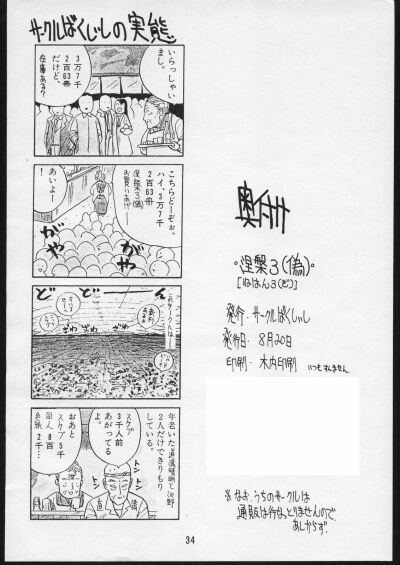 サークルばくしいしの実態
いらっしゃい
まし。
3万7千
2百63冊
だけど、
在庫ある?
こちらどーぞぉ、
ハイ、3万7千
2百63冊
涅槃3(偽)
お買いあげ
あいよー
!
がや
がや
どどーん
このサークルは…
年老いた
2人だけできりもり
している。
スケブ
3千人前
あがってる
よ。
おあと
スケブ5千
同人8百
色紙2千…
トントン
トントン
奥付
・涅槃3(偽)・
[ねはん3(ぎ)]
発行・サークルばくしいし
発行日・8月20日
印刷・木内印刷
いつもすんません。
※なお、うちのサークルは
通販は行なっとりませんので
あしからず。
34